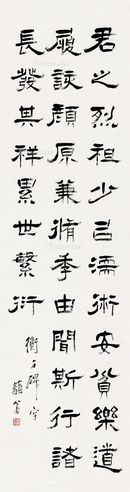 君之烈祖少㠯濡術安貧樂道
履該顏原兼脩季由聞斯行諸
長發其祥累世繁衍
衡方碑字